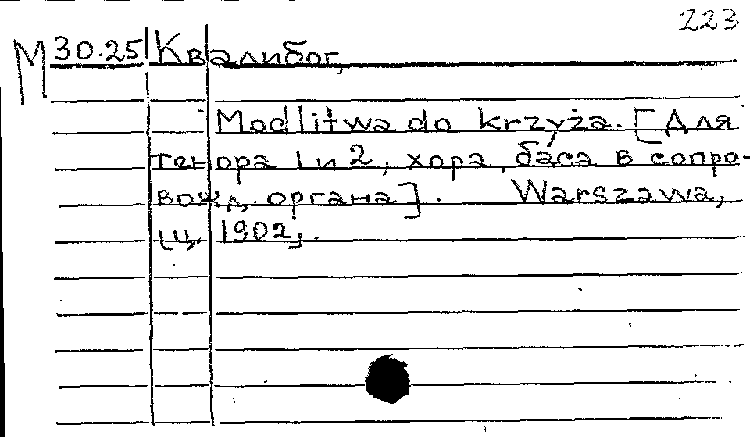 223
М 30.25 Квалибог,
Modlitwa do krzyża. [Для
тенора 1 и 2, хора, баса в сопро-
вожд. органа]. Warszawa,
ц. 1902,.